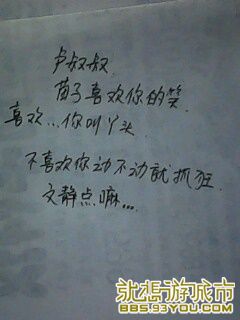 卢叔叔.
苗子喜欢你的笑.
喜欢...你叫丫头
不喜欢你动不动就抓狂.
文静点嘛...
885.93YOU.COM